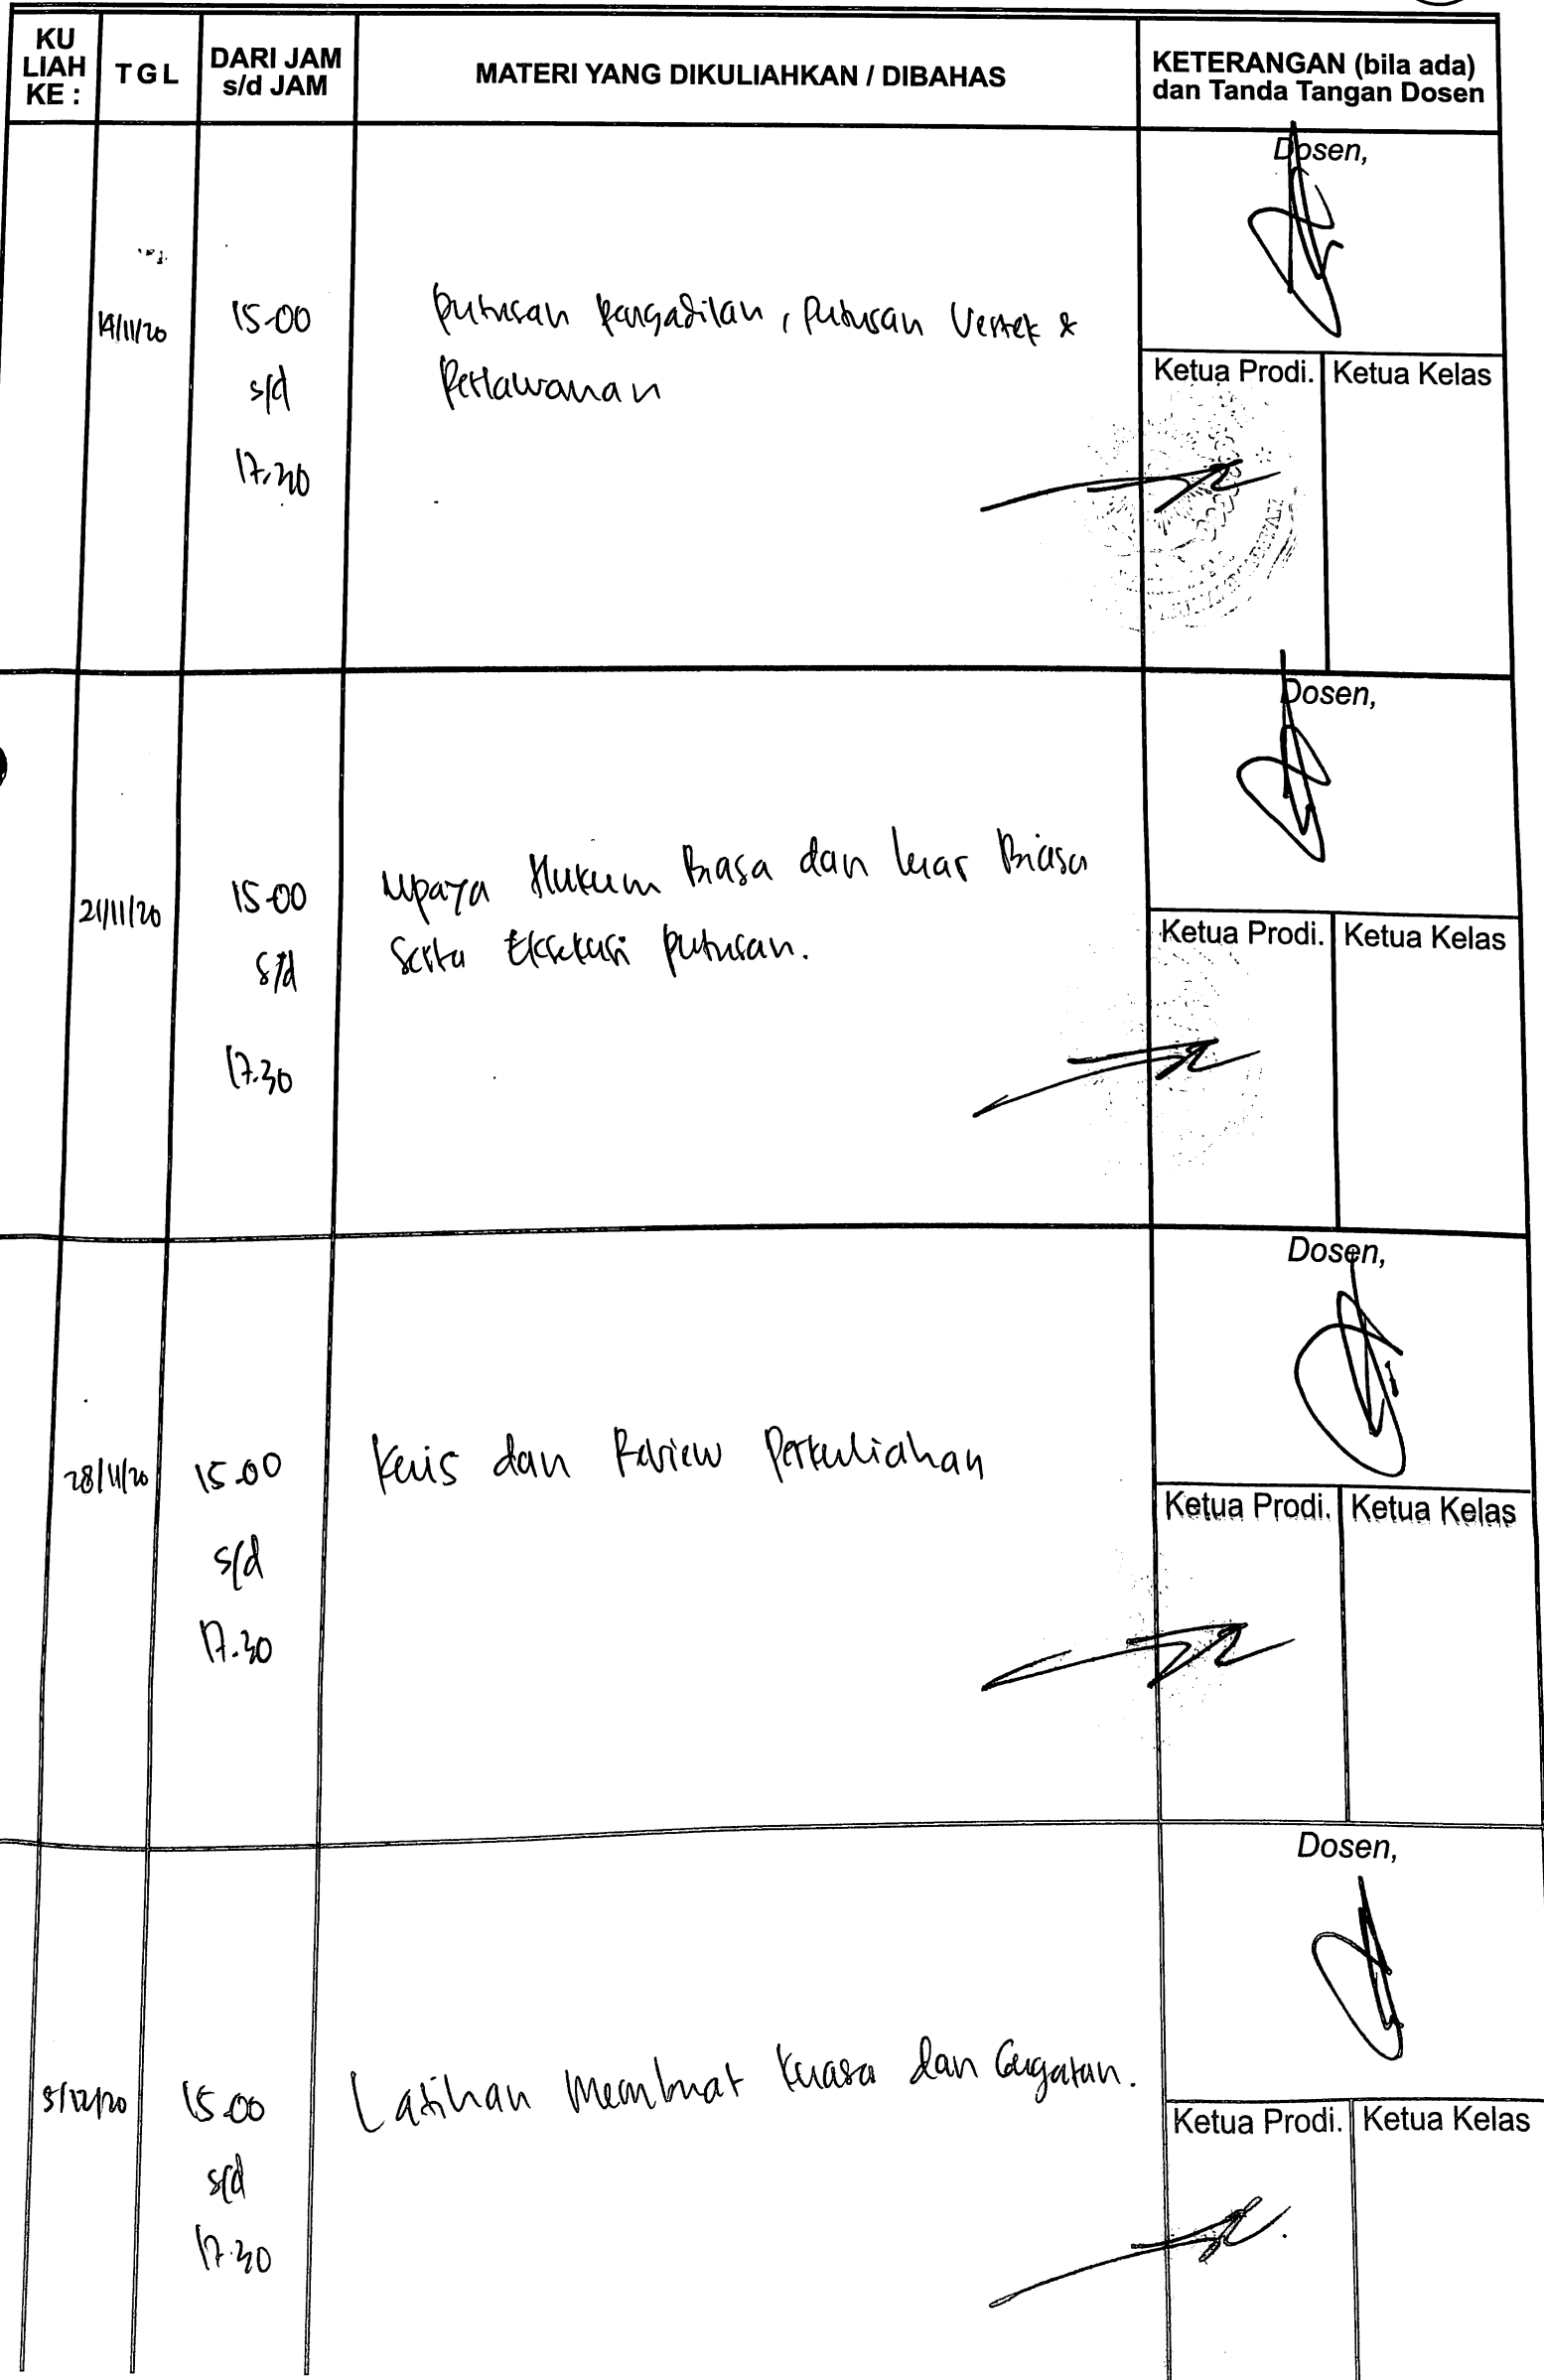 KU
LIAH
KE :
TGL
DARI JAM
s/d JAM
MATERI YANG DIKULIAHKAN / DIBAHAS
KETERANGAN (bila ada)
dan Tanda Tangan Dosen
Dosen,
14/11/20
15.00
s/d
17.30
Putusan Pengadilan, Putusan Verstek &
Perlawanan
Ketua Prodi.
Ketua Kelas
Dosen,
21/11/20
15.00
s/d
17.30
Upaya Hukum Biasa dan luar Biasa
serta Eksekusi putusan.
Ketua Prodi.
Ketua Kelas
Dosen,
28/11/20
15.00
s/d
17.30
Kuis dan Review Perkuliahan
Ketua Prodi.
Ketua Kelas
Dosen,
5/12/20
15.00
s/d
17.30
Latihan Membuat Kuasa dan Gugatan.
Ketua Prodi.
Ketua Kelas